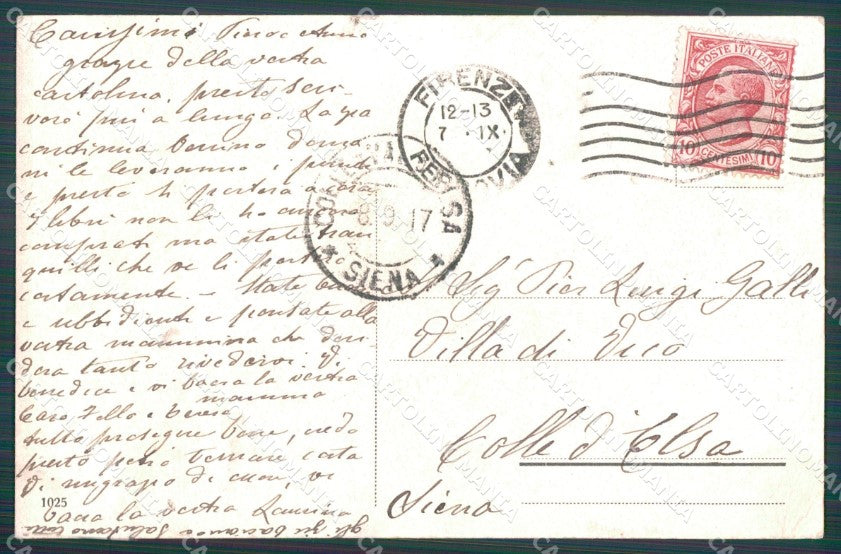 Carissimi Pino e Anna
grazie della vostra
cartolina, presto scri-
verò più a lungo. La zia
continua benino doma
ni le leveranno i punti
e presto ti porterà a casa
I libri non li ho ancora
comprati ma state
quelli che ve li porterò
certamente. - State buoni
e ubbidienti e pensate alla
vostra mammina che desi
dera tanto rivedervi. Vi
benedice e vi bacia la vostra
mamma
Caro Lello e
tutto prosegue bene, credo
presto potrò tornare costà
Vi ringrazio di cuore, vi
bacia la vostra
1025
FIRENZE FERROVIA
12-13
7 IX
COLLE VAL D'ELSA
8 9 17
* SIENA *
POSTE ITALIANE
10 CENTESIMI 10
Sigʳ Pier Luigi Galli
Villa di Vico
Colle d'Elsa
Siena
CARTOLINOMANIA